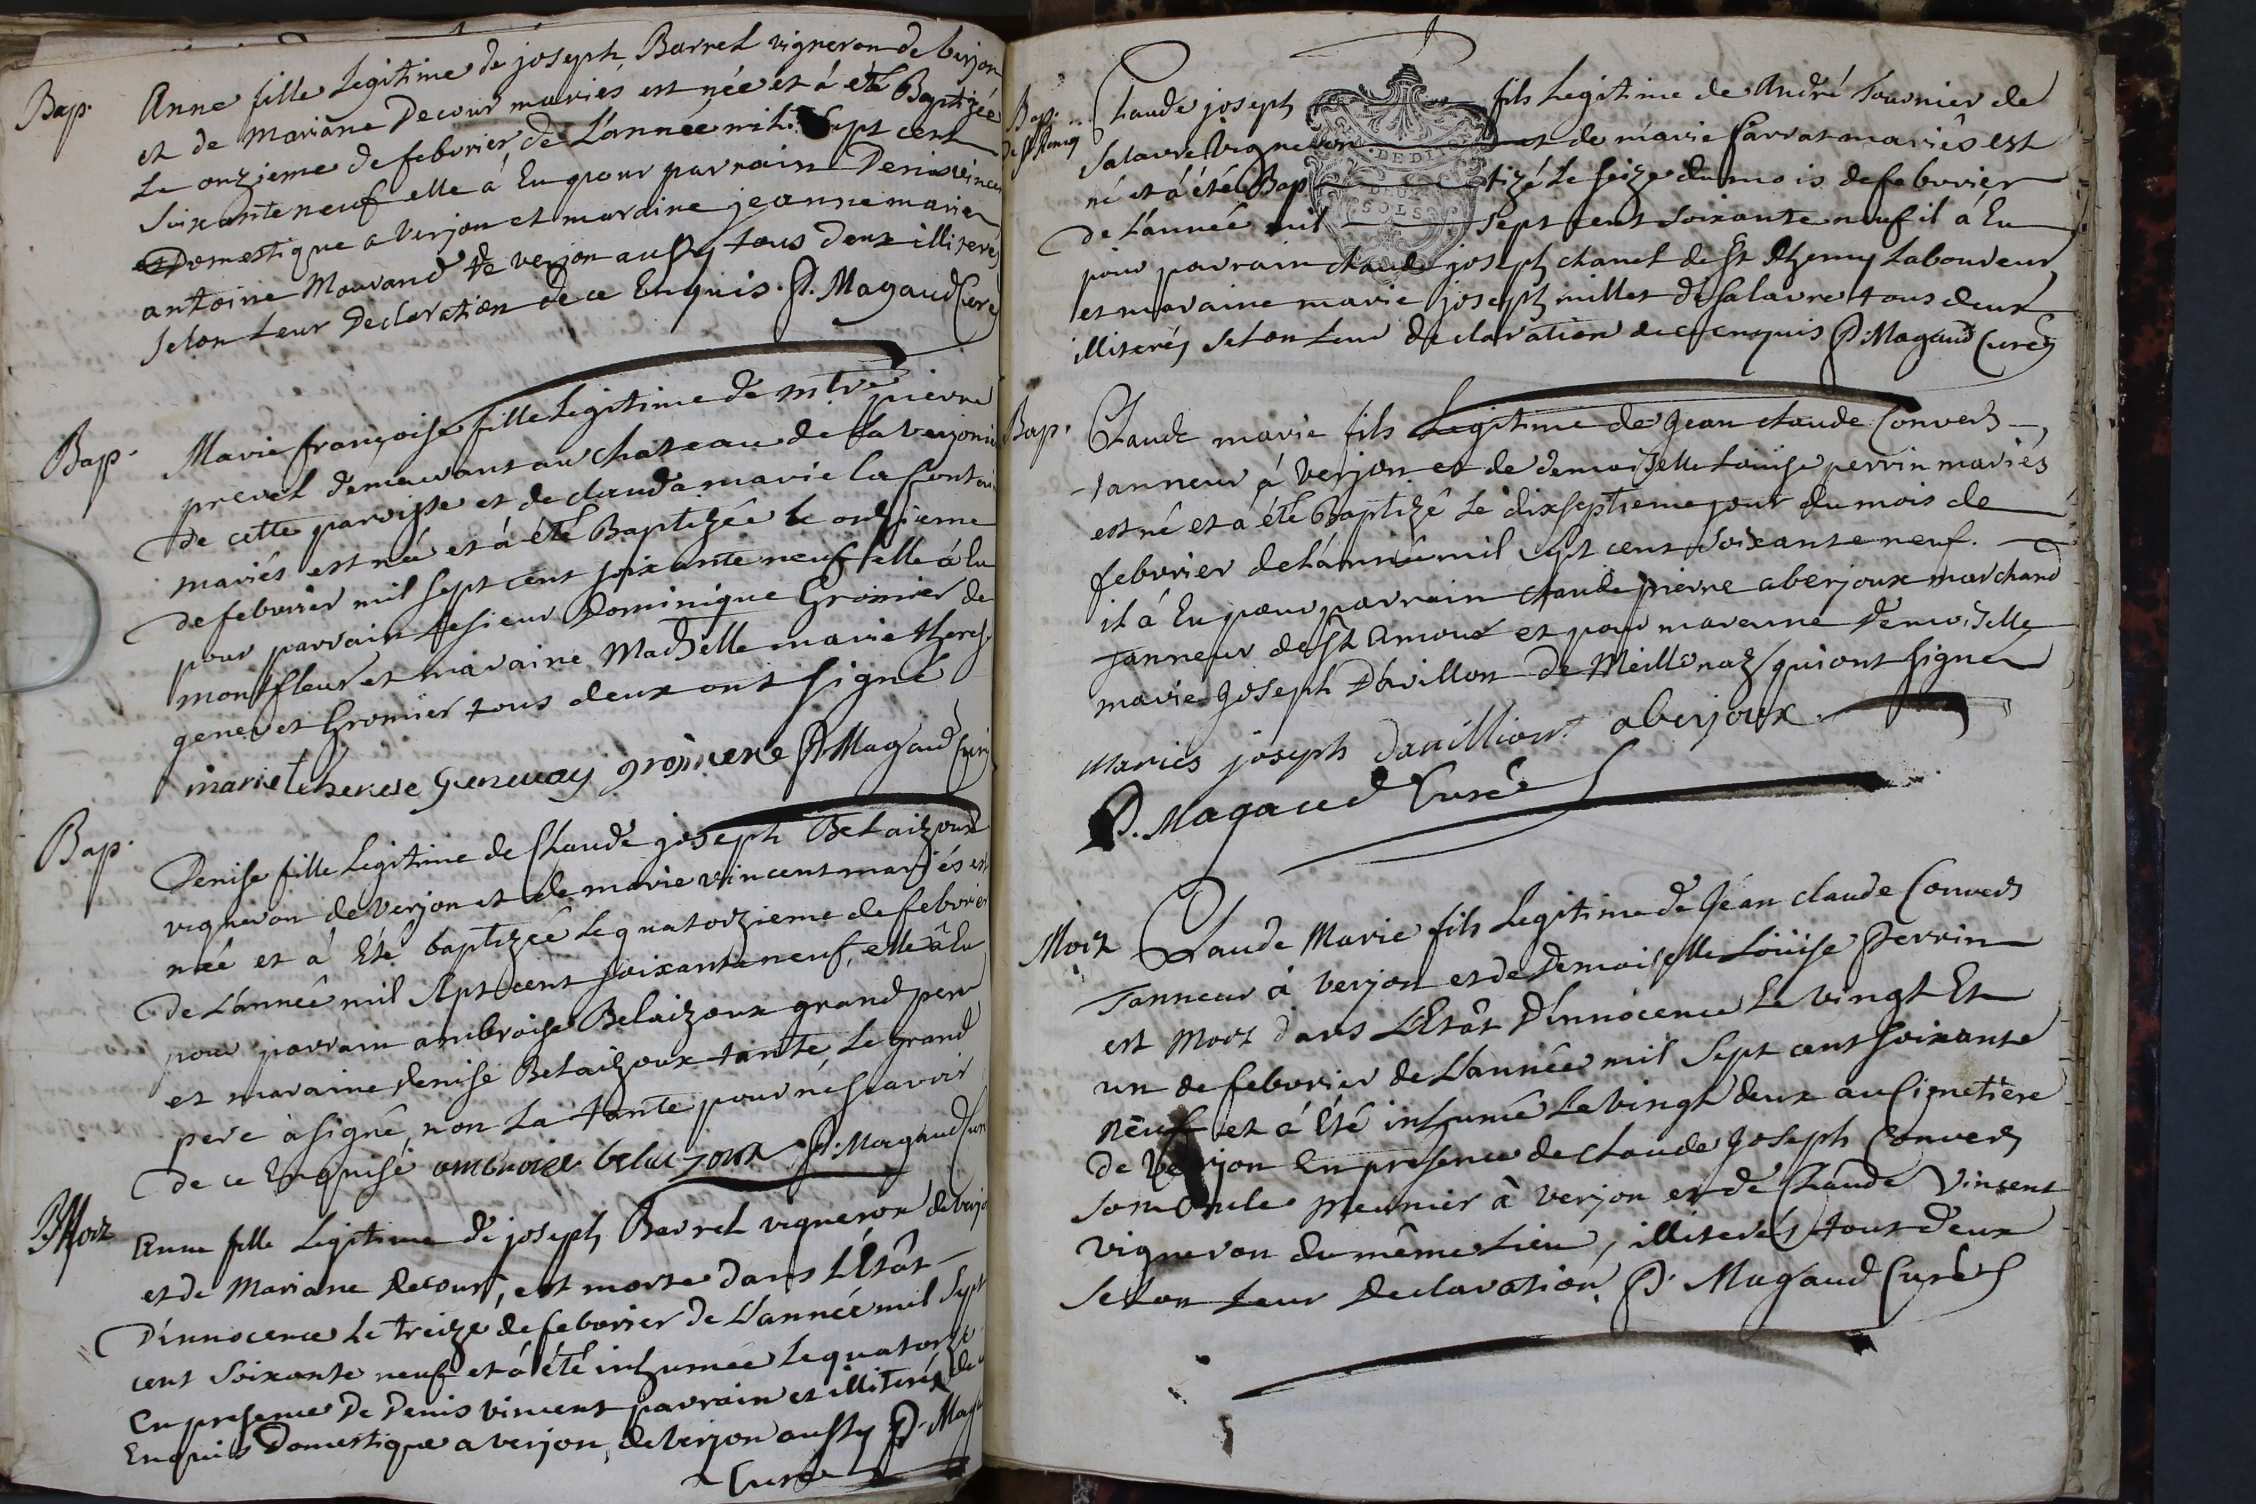 Bap.
Anne fille Legitime de joseph Barrel vigneron de berjon
et de mariane Decour mariés est née et á eté Baptizée
Le onzieme de febvrier de L'année mil Sept cent
Soixante neuf elle á Eu pour parrain Denis vincent
Domestique a Verjon et maraine jeanne marie
antoine Mouvand de verjon aussy tous deux illiterés
selon leur Declaration de ce Enquis. P. Magaud Curé
Bap.
Marie françoise fille Legitime de mtre pierre
prevel demeurant au chateau de la verjoniere
de cette paroisse et de clauda marie la
mariés est née et á été Baptizée le onzieme
de febvrier mil sept cent soixante neuf elle á Eu
pour parrain le sieur Dominique Gromier de
montfleur et maraine Madselle marie therese
genevet Gromier tous deux ont signé
marie therese genevay gromiere P. Magaud Curé
Bap.
Denise fille Legitime de Claude joseph Belaizoux
vigneron de verjon et de marie vincent mariés est
née et á Eté baptizée le quatorzieme de febvrier
de L'année mil Sept cent soixante neuf, elle á Eu
pour parrain ambroise Belaizoux grand pere
et maraine denise Belaizoux tante, le grand
pere à signé, non la tante pour ne scavoir
de ce Enquise ambroise belaizoux P. Magaud Curé
Mort
Anne fille Legitime de joseph Barrel vigneron de verjon
et de Mariane Decour, est morte dans L'Etât
D'innocence Le treize de febvrier de L'année mil Sept
cent Soixante neuf et á été inhumée le quatorze
En presence De Denis vincent parrain et illiteré de ce
Enquis Domestique a verjon, de verjon aussy P. Magaud
Curé
Bap.
de St Remy
Claude joseph fils Legitime de André tournier de
Salavre vigneron et de marie Carrat mariés est
né et á été Bap tizé Le seize du mois de febvrier
de L'année mil sept cent soixante neuf il á Eu
DEDI
SOLS
pour parrain claude joseph chanel de St Rhemy Laboureur
et maraine marie joseph millet de Salavre tous deux
illiterés selon leur declaration de ce enquis P. Magaud Curé
Bap.
Claude marie fils Legitime de Jean claude Convers
tanneur á verjon et de demoiselle Loüise perrin mariés
est né et á été Baptizé Le dixseptieme jour du mois de
febvrier de L'année mil sept cent soixante neuf.
il á Eu pour parrain claude pierre aberjoux marchand
Tanneur de St amour et pour maraine Demoiselle
marie Joseph Davillon de Meillonaz qui ont signé
maries joseph davilliont aberjoux
P. Magaud Curé
Mort
Claude Marie fils Legitime de Jean claude Convers
Tanneur á verjon et de Demoiselle Loüise Perrin
est Mort dans L'Etât D'innocence Le vingt Et
un de febvrier de L'année mil Sept cent soixante
neuf et á Eté inhumé le vingt deux au Cimetière
de Verjon En presence de claude Joseph Convers
son oncle meunier à verjon et de Claude Vincent
vigneron du même Lieu, illiterés tout deux
selon Leur Declaration. P. Magaud Curé